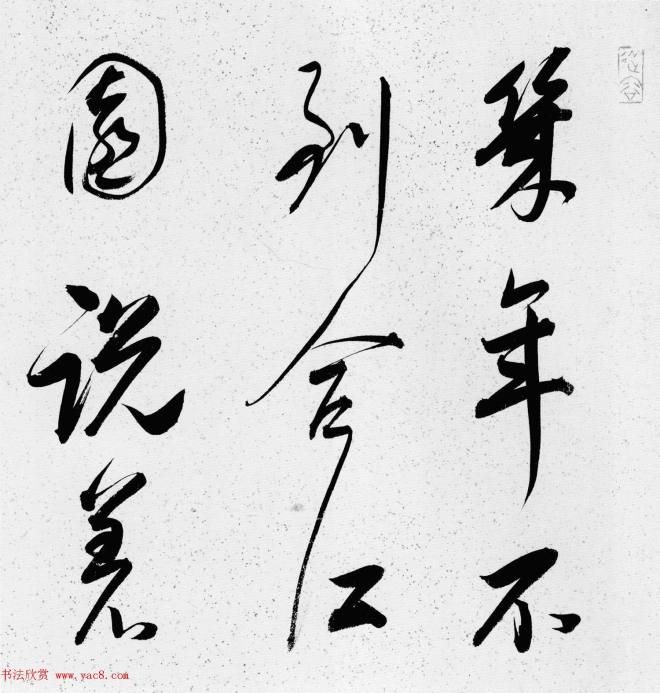 幾年不
到合江
園说着
书法欣赏 www.yac8.com